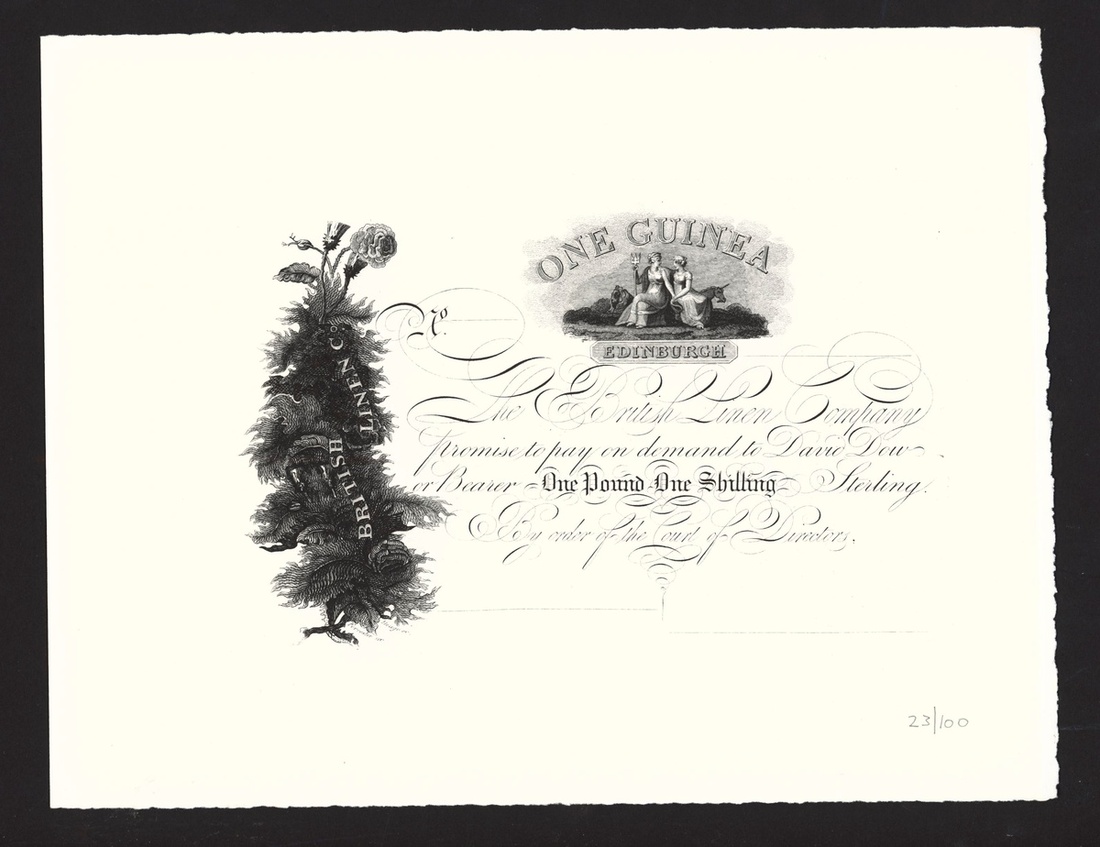 ONE GUINEA
No
EDINBURGH
BRITISH LINEN Co.
The British Linen Company
promise to pay on demand to David Dow
or Bearer One Pound One Shilling Sterling.
By order of the Court of Directors.
23/100